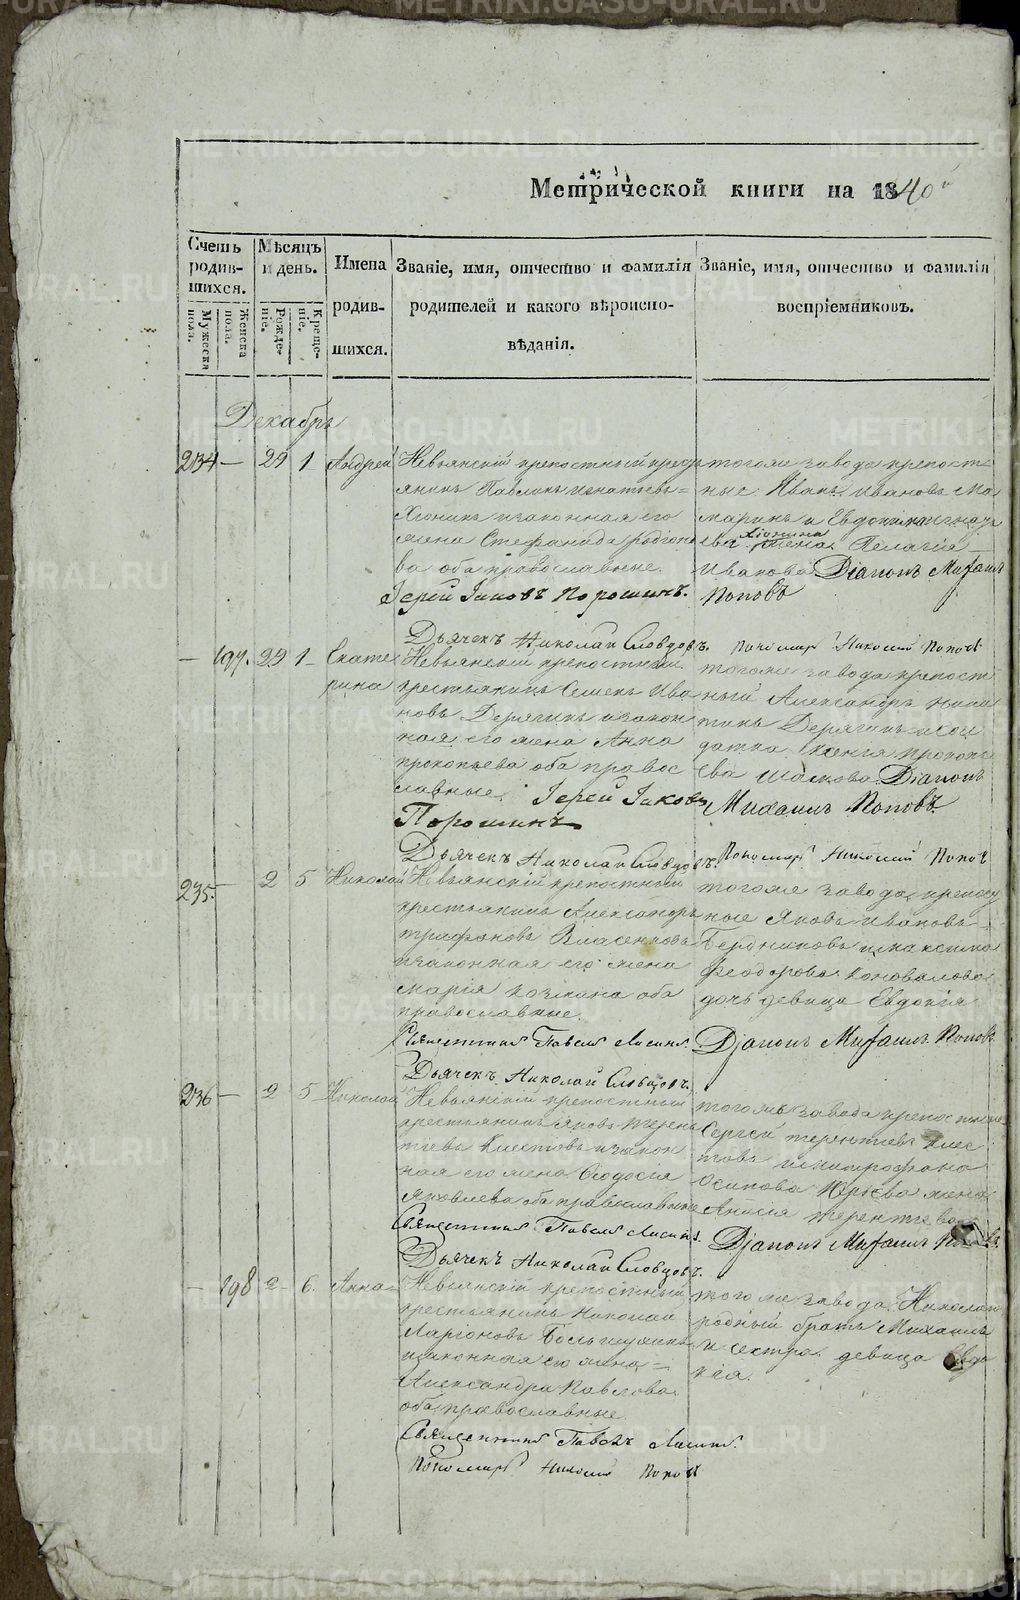 Метрической книги на 1840й
Счетъ родив-шихся.
Мужеска пола.
Женска пола.
Мѣсяцъ и день.
Рожде-ніе.
Креще-ніе.
Имена родив-шихся.
Званіе, имя, отчество и фамилія родителей и какого вѣроиспо-вѣданія.
Званіе, имя, отчество и фамилія воспріемниковъ.
Декабрь
234 — 29 1 Андрей
Невьянскій крепостный кресть
янинъ Павелъ Игнатьевъ =
Хіонинъ изаконная его
жена Стефанида Родіоно
ва оба православные.
Іерей Іаковъ Порошинъ.
Дьячекъ Николай Словцовъ.
тогоже завода крепост
ные Иванъ Ивановъ Ма
маринъ и Евдокима Игнать
ева Хіонина жена Пелагія
Иванова Діаконъ Михаилъ
Поповъ
Пономарь Николай Поповъ
— 197. 29 1 Екате
рина
Невьянскій крепостный
крестьянинъ Семенъ Ива
новъ Дерягинъ изакон
ная его жена Анна
Прокопьева оба правос
лавные. Іерей Іаковъ
Порошинъ
Дьячекъ Николай Словцовъ.
тогоже завода крепост
ный Александръ Ники
тинъ Дерягинъ и сол
датка Ксенія Прокопь
ева Діаконъ
Михаилъ Поповъ
Пономарь Николай Поповъ
235. 2 5 Николай
Невьянскій крепостный
крестьянинъ Александръ
Трифоновъ Власенковъ
изаконная его жена
Марія Козмина оба
православные.
Священникъ Павелъ
Дьячекъ Николай Словцовъ.
тогоже завода крепост
ные Яковъ Ивановъ
Бердниковъ и Максима
Феодорова Коновалова
дочь девица Евдокія
Діаконъ Михаилъ Поповъ
236 — 2 5 Николай
Невьянскій крепостный
крестьянинъ Яковъ Терен
тіевъ изакон
ная его жена Феодосія
Яковлева оба православные
Священникъ Павелъ
Дьячекъ Николай Словцовъ.
тогоже завода крепостные
Сергей Терентіевъ
и Митрофана
Осипова Юрьева жена
Анисія Терентьева
Діаконъ Михаилъ Поповъ
— 198 2 6. Анна
Невьянскій крепостный
крестьянинъ Николай
Ларіоновъ
изаконная его жена =
Александра Павлова
оба православные.
Священникъ Павелъ
Пономарь Николай Поповъ
тогоже завода Николая
родный братъ Михаилъ
и сестра девица Евдо
кія.
METRIKI.GASO-URAL.RU